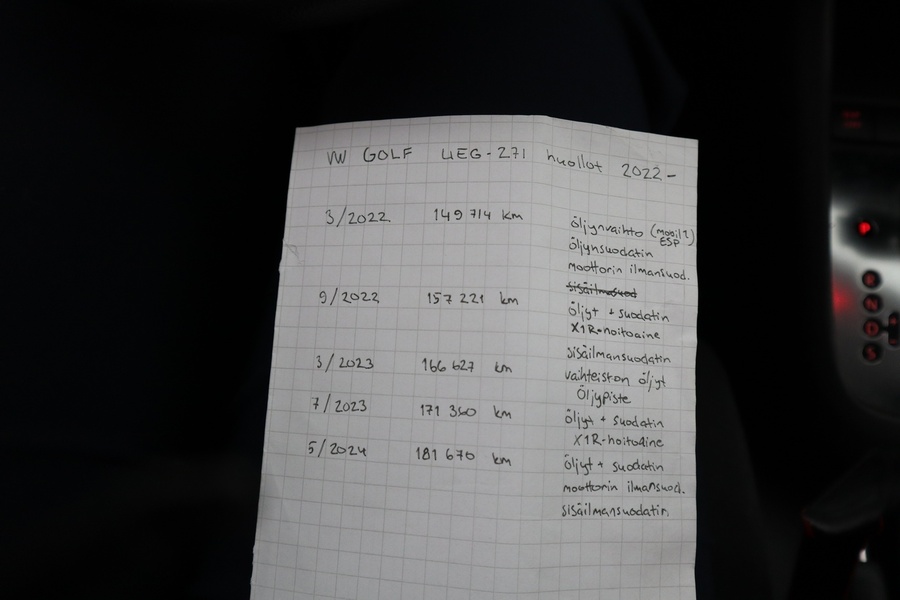 VW GOLF UEG-271 huollot 2022-
3/2022 149 714 km öljynvaihto (mobil1?)
ESP
öljynsuodatin
moottorin ilmansuod.
sisäilmasuod
9/2022 157 221 km öljyt + suodatin
X1R-hoitoaine
sisäilmansuodatin
3/2023 166 627 km vaihteiston öljyt
Öljypiste
7/2023 171 360 km öljyt + suodatin
X1R-hoitoaine
5/2024 181 670 km öljyt + suodatin
moottorin ilmansuod.
sisäilmansuodatin
P
R
N
D
S